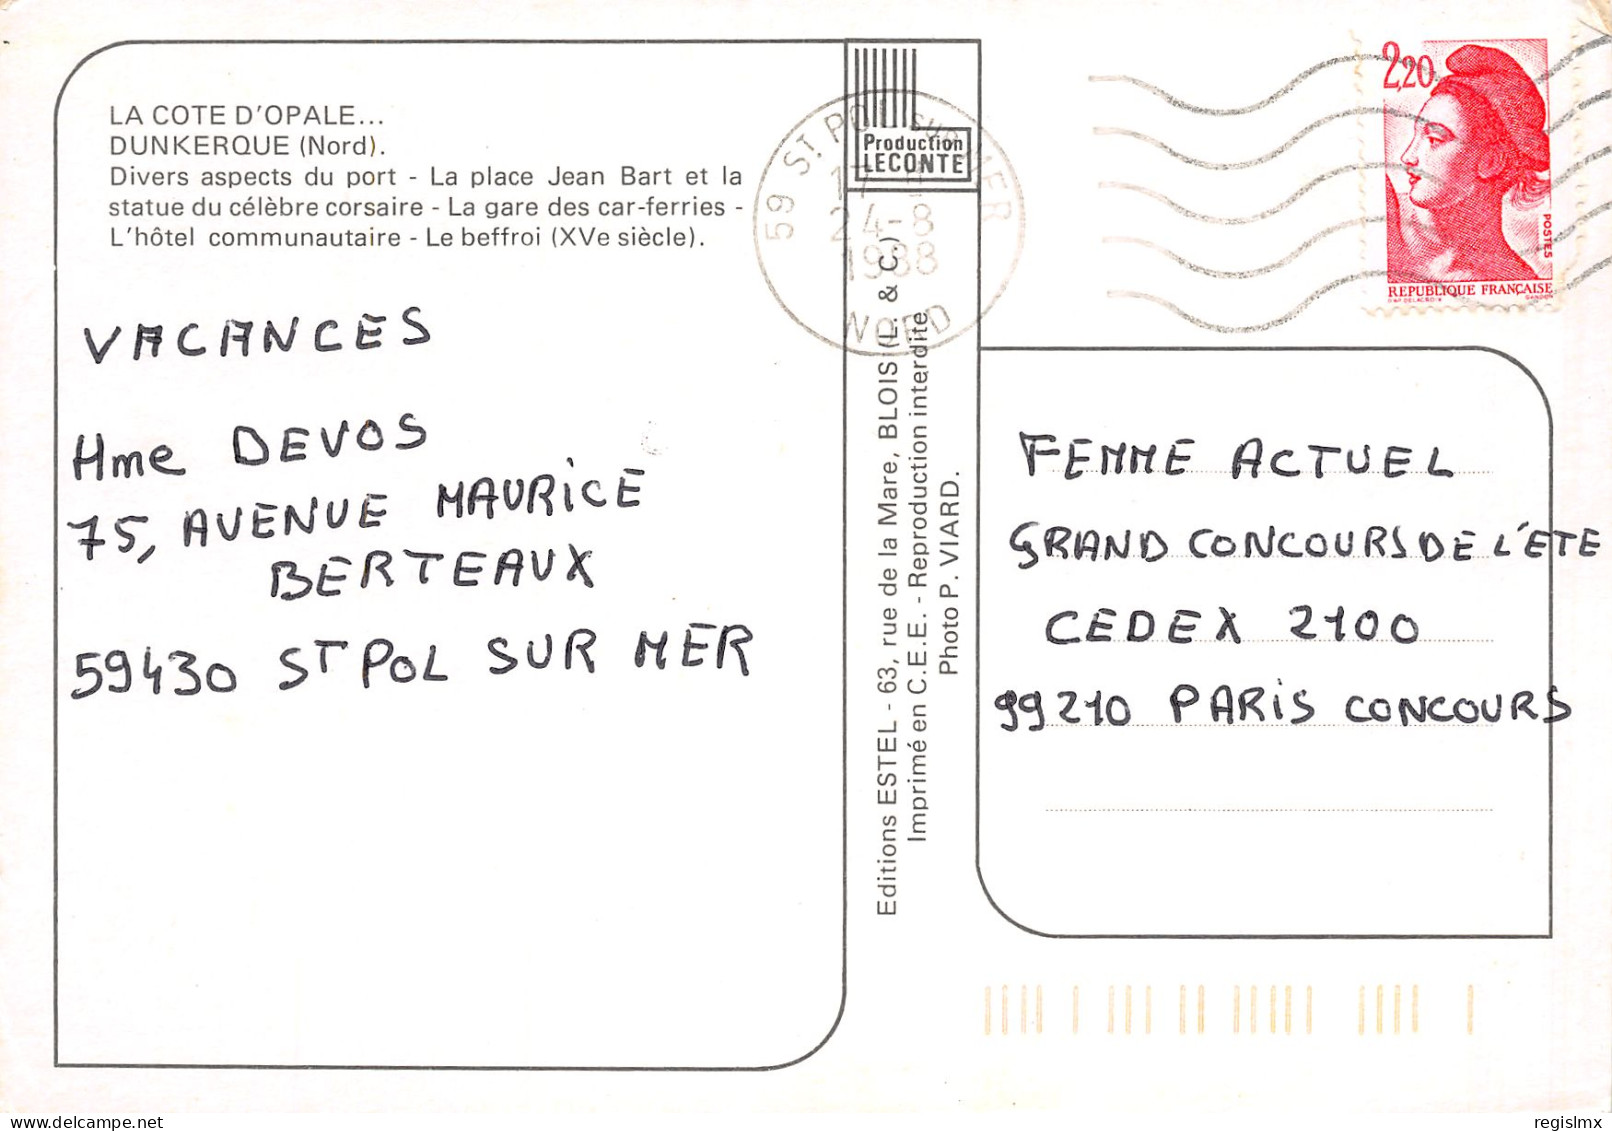 LA COTE D'OPALE...
DUNKERQUE (Nord).
Divers aspects du port - La place Jean Bart et la
statue du célèbre corsaire - La gare des car-ferries -
L'hôtel communautaire - Le beffroi (XVe siècle).
VACANCES
Mme DEVOS
75, AVENUE MAURICE
BERTEAUX
59430 ST POL SUR MER
Production
LECONTE
59 ST. POL SUR MER
24-8
1988
NORD
Editions ESTEL - 63, rue de la Mare, BLOIS (L. & C.)
Imprimé en C.E.E. - Reproduction interdite
Photo P. VIARD.
2,20
POSTES
REPUBLIQUE FRANÇAISE
D'AP DELACROIX
GANDON
FEMME ACTUEL
GRAND CONCOURS DE L'ETE
CEDEX 2100
99210 PARIS CONCOURS
regislmx